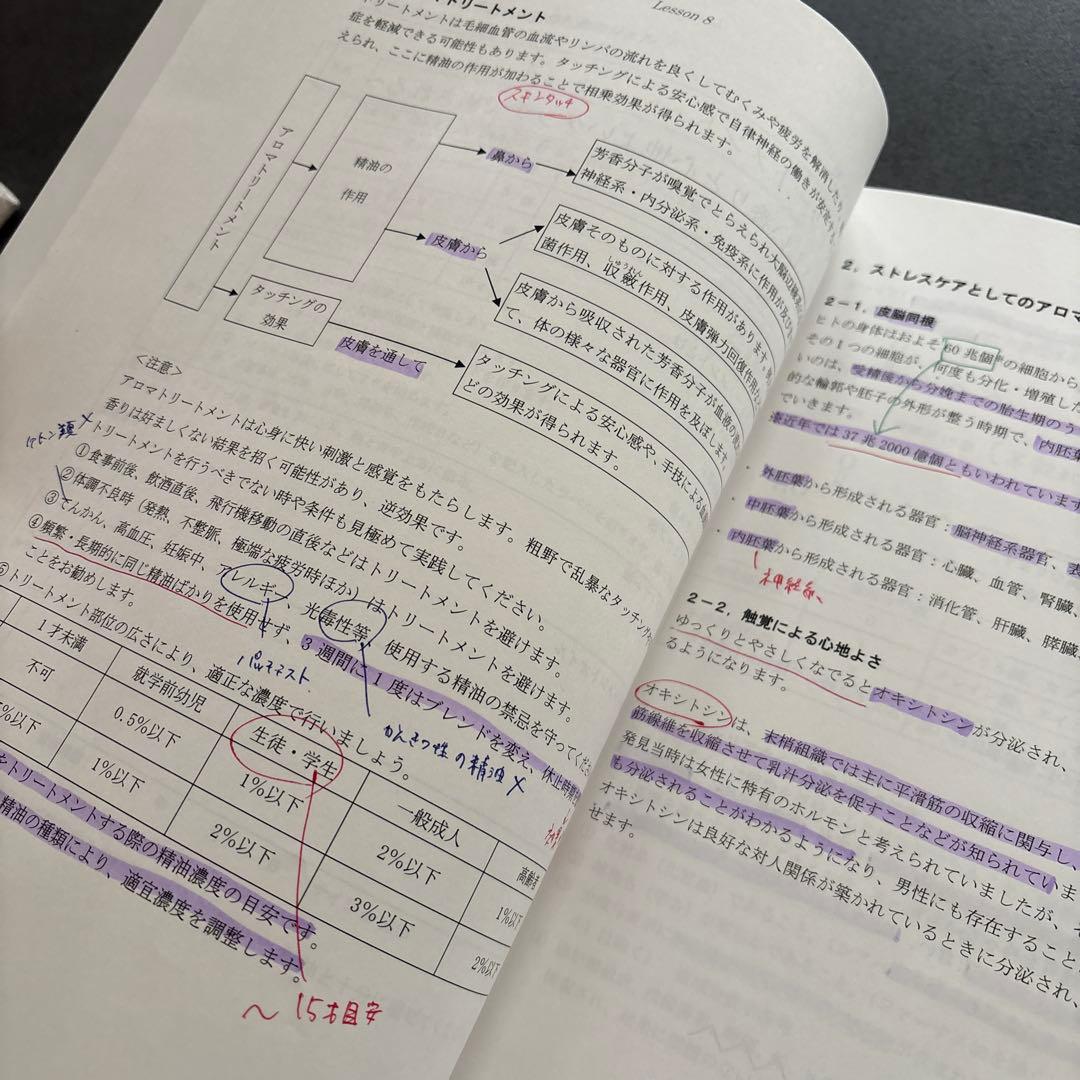 Lesson 8
トリートメント
トリートメントは毛細血管の血流やリンパの流れを良くしてむくみや疲労を解消したり
症を軽減できる可能性もあります。タッチングによる安心感で自律神経の働きが安定する
えられ、ここに精油の作用が加わることで相乗効果が得られます。
スキンタッチ
アロマトリートメント
精油の
作用
鼻から
芳香分子が嗅覚でとらえられ大脳辺縁系
神経系・内分泌系・免疫系に作用が及び
皮膚から
皮膚そのものに対する作用があります。
菌作用、収斂作用、皮膚弾力回復作用
しゅうれん
皮膚から吸収された芳香分子が血液の
て、体の様々な器官に作用を及ぼします。
タッチングの
効果
皮膚を通して
タッチングによる安心感や、手技による
どの効果が得られます。
<注意>
アロマトリートメントは心身に快い刺激と感覚をもたらします。粗野で乱暴なタッチング
香りは好ましくない結果を招く可能性があり、逆効果です。
トリートメントを行うべきでない時や条件も見極めて実践してください。
①食事前後、飲酒直後、飛行機移動の直後などはトリートメントを避けます。
②体調不良時（発熱、不整脈、極端な疲労時ほか）はトリートメントを避けます。
③てんかん、高血圧、妊娠中、アレルギー、光毒性等、使用する精油の禁忌を守ってくだ
④頻繁・長期的に同じ精油ばかりを使用せず、3週間に1度はブレンドを変え、休止時期
ことをお勧めします。
⑤トリートメント部位の広さにより、適正な濃度で行いましょう。
ケトン類×
パッチテスト
かんきつ性の精油×
1才未満
就学前幼児
生徒・学生
一般成人
高齢者
不可
0.5%以下
1%以下
2%以下
1%以下
%以下
1%以下
2%以下
3%以下
2%以下
をトリートメントする際の精油濃度の目安です。
精油の種類により、適宜濃度を調整します。
～15才目安
2．ストレスケアとしてのアロマ
2－1．皮脳同根
ヒトの身体はおよそ60兆個※の細胞から
その1つの細胞が、何度も分化・増殖した
いのは、受精後から分娩までの胎生期のう
的な輪郭や胚子の外形が整う時期で、内胚葉
ていきます。
※近年では37兆2000億個ともいわれています
・外胚葉から形成される器官：脳神経系器官、表
・中胚葉から形成される器官：心臓、血管、腎臓、
・内胚葉から形成される器官：消化管、肝臓、膵臓
神経系、
2－2．触覚による心地よさ
ゆっくりとやさしくなでるとオキシトシンが分泌され、
るようになります。
オキシトシンは、末梢組織では主に平滑筋の収縮に関与し、
筋線維を収縮させて乳汁分泌を促すことなどが知られていま
発見当時は女性に特有のホルモンと考えられていましたが、そ
も分泌されることがわかるようになり、男性にも存在すること
オキシトシンは良好な対人関係が築かれているときに分泌され、
せます。